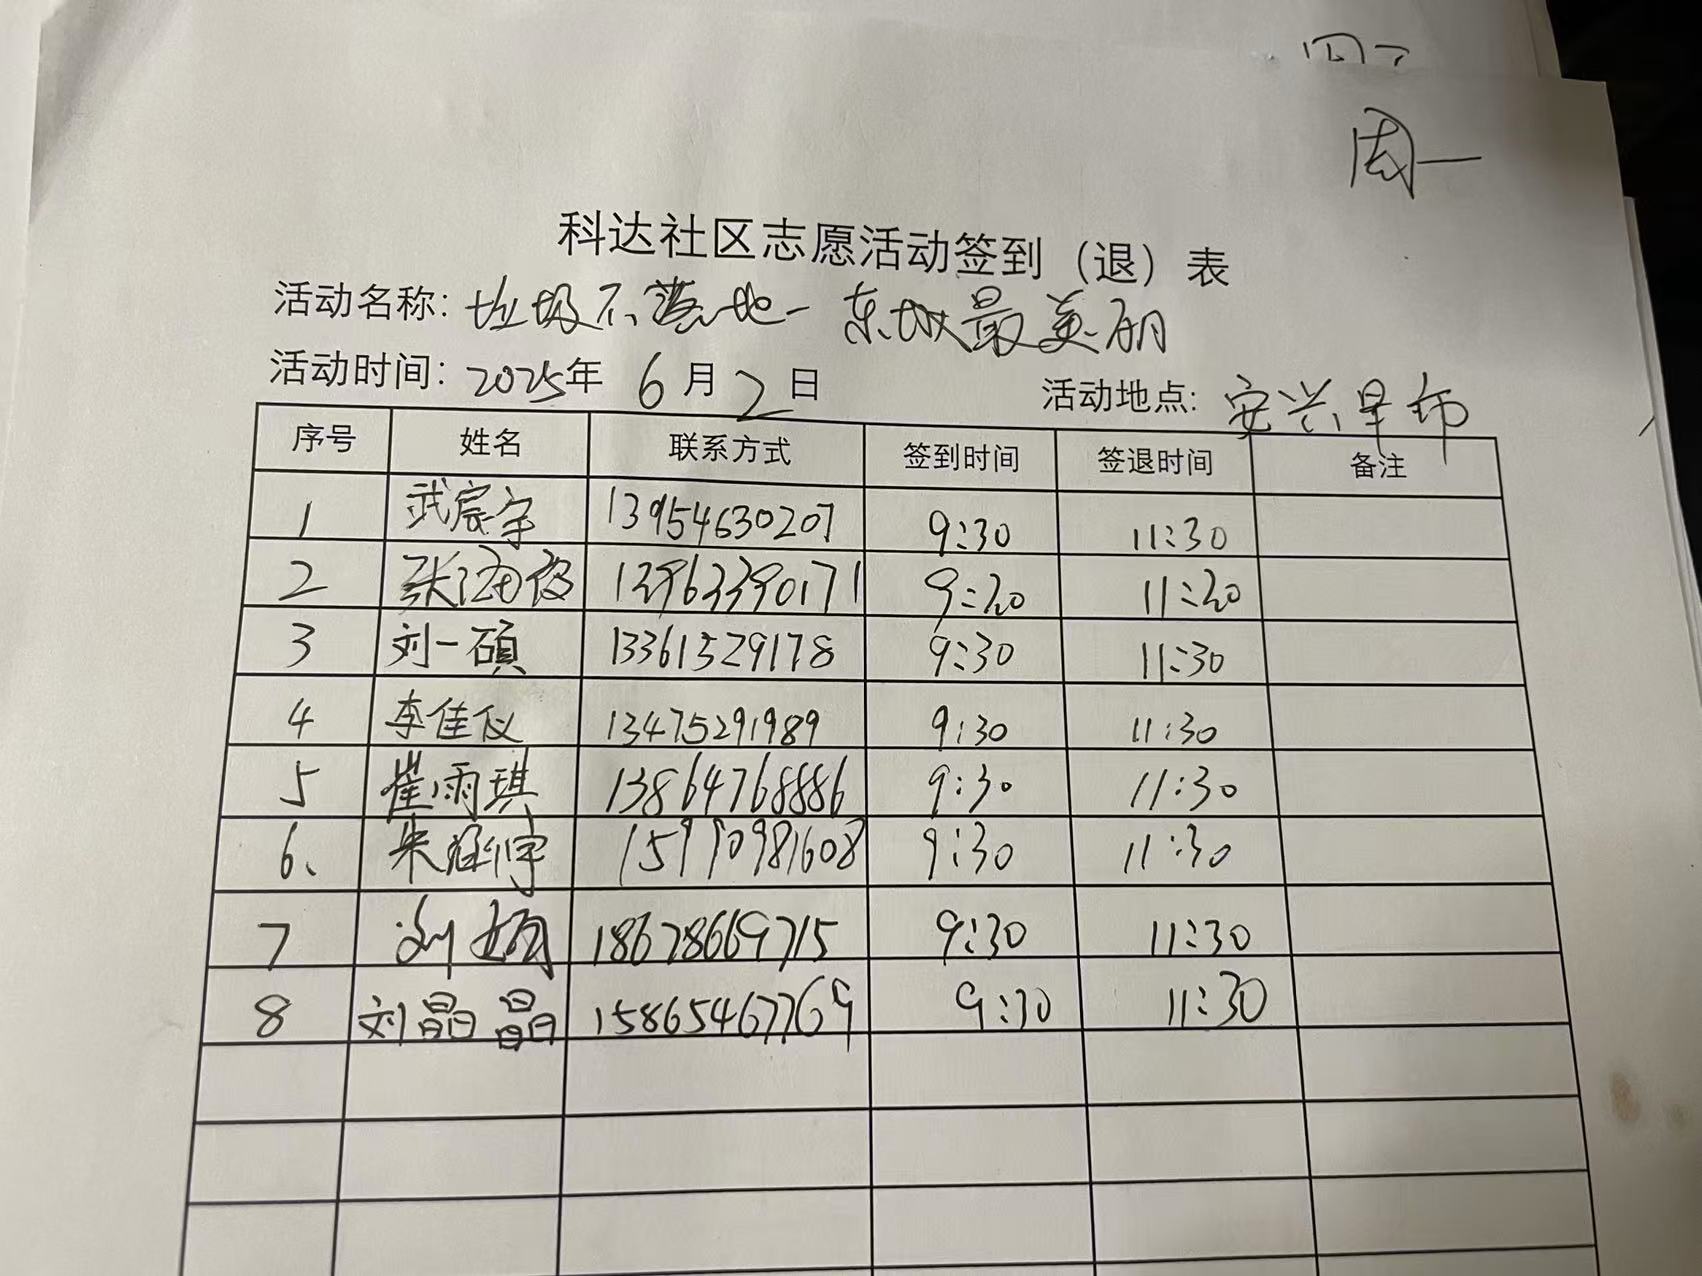 周一
科达社区志愿活动签到（退）表
活动名称: 垃圾不落地一东城最美丽
活动时间: 2025年 6月2日 活动地点: 安兴早市
序号 姓名 联系方式 签到时间 签退时间 备注
1 武宸宇 13954630207 9:30 11:30
2 张 13963390171 9:30 11:30
3 刘一硕 13361529178 9:30 11:30
4 李佳仪 13475291989 9:30 11:30
5 崔雨琪 13864768886 9:30 11:30
6、 朱 9:30 11:30
7 刘 18678669715 9:30 11:30
8 刘晶晶 15865467769 9:30 11:30